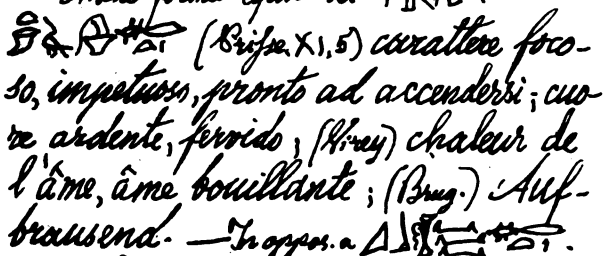 (Prisse. XI, 5) carattere foco-
so, impetuoso, pronto ad accendersi; cuo-
re ardente, fervido; (Virey) chaleur de
l'âme, âme bouillante; (Brug.) Auf-
brausend. — In oppos. a